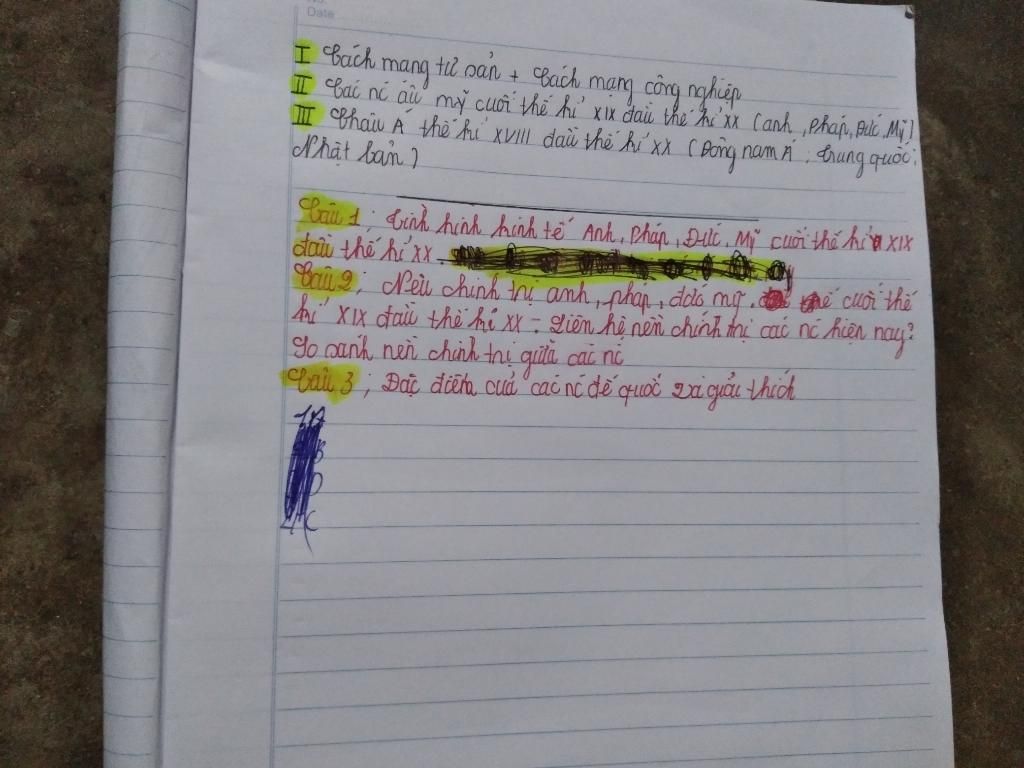 Date
I Cách mạng tư sản + Cách mạng công nghiệp
II Các nc âu mỹ cuối thế kỉ XIX đầu thế kỉ XX (anh, Pháp, Đức, Mỹ)
III Châu Á thế kỉ XVIII đầu thế kỉ XX (Đông nam Á, Trung quốc,
Nhật bản)
Câu 1; Tình hình kinh tế Anh, Pháp, Đức, Mỹ cuối thế kỉ XIX
đầu thế kỉ XX.
Câu 2; Nền chính trị anh, pháp, đức mỹ cuối thế
kỉ XIX đầu thế kỉ XX - Liên hệ nền chính trị các nc hiện nay?
So sánh nền chính trị giữa các nc
Câu 3; Đặc điểm của các nc đế quốc và giải thích